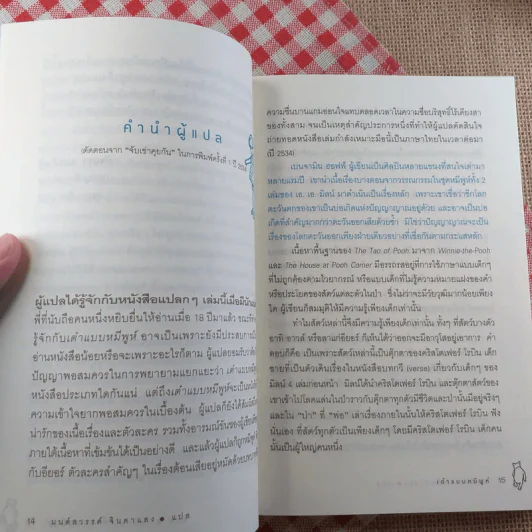 คำนำผู้แปล
(คัดตอนจาก "จับเข่าคุยกัน" ในการพิมพ์ครั้งที่ ๑ ปี 2534)
ผู้แปลได้รู้จักกับหนังสือแปลก ๆ เล่มนี้เมื่อมี
พี่ที่นับถือคนหนึ่งหยิบยื่นให้อ่านเมื่อ 18 ปีมาแล้ว
รู้จักกับเต๋าแบบหมีพูห์ อาจเป็นเพราะยังมีประสบ
อ่านหนังสือน้อยหรือจะเพราะอะไรก็ตาม ผู้แปลยอมรับว่า
ปัญญาพอสมควรในการพยายามทำความเข้าใจ
หนังสือประเภทใดกันแน่ แต่ถึงเต๋าแบบหมีพูห์จะเป็น
ความเข้าใจยากพอสมควรในเบื้องต้น ผู้แปลก็ยังได้
น่ารักของเนื้อเรื่องและตัวละคร รวมทั้งอารมณ์ขันของ
ภายใต้เนื้อหาที่เข้มข้นได้เป็นอย่างดี และแล้วผู้แปลก็
กับอียอร์ ตัวละครสำคัญๆ ในเรื่องต้อนเสียอยู่หมัดด้วย
14 มนต์สวรรค์ จินดาแสง • แปล
ความชื่นบานแกมอ่อนใจแทบตลอดเวลาในความซื่อบริสุทธิ์ไร้เดียงสา
ของทั้งสาม จนเป็นเหตุสำคัญประการหนึ่งที่ทำให้ผู้แปลตัดสินใจ
ถ่ายทอดหนังสือเล่มกำลังเหมาะมือนี้เป็นภาษาไทยในเวลาต่อมา
(ปี 2534)
เบนจามิน ฮอฟฟ์ ผู้เขียนเป็นศิลปินหลายแขนงที่สนใจเต๋ามา
หลายแรมปี เขานำเนื้อเรื่องบางตอนจากวรรณกรรมในชุดหมีพูห์ทั้ง 2
เล่มของ เอ. เอ. มิลน์ มาดำเนินเป็นเรื่องหลัก เพราะเขาเชื่อว่าซีกโลก
ตะวันตกของเขาเป็นบ่อเกิดแห่งปัญญาญาณอยู่ด้วย และอาจเป็นบ่อ
เกิดที่สำคัญมากกว่าตะวันออกเสียด้วยซ้ำ มิใช่ว่าปัญญาญาณจะเป็น
เรื่องของโลกตะวันออกเพียงฝ่ายเดียวอย่างที่เชื่อกันตามกระแสหลัก
เนื้อหาพื้นฐานของ The Tao of Pooh มาจาก Winnie-the-Pooh
และ The House at Pooh Corner มีอรรถรสอยู่ที่การใช้ภาษาแบบเด็กๆ
ที่ไม่ถูกต้องตามไวยากรณ์ หรือแบบเด็กที่ไม่รู้ความหมายแห่งของคำ
หรือประโยชของสัตว์แต่ละตัวในป่า ซึ่งไม่ว่าจะมีวัยวุฒิมากน้อยเพียง
ใด ผู้เขียนก็สมมติให้มีความรู้เพียงเด็กเท่านั้น
ทำไมสัตว์เหล่านี้จึงมีความรู้เพียงเด็กเท่านั้น ทั้งๆ ที่สัตว์บางตัว
อาทิ อาวล์ หรือลาแก่อียอร์ ก็เห็นได้ว่าออกจะมีอาวุโสอยู่เอาการ คำ
ตอบก็คือ เป็นเพราะสัตว์เหล่านี้เป็นตุ๊กตาของคริสโตเฟอร์ โรบิน เด็ก
ชายที่เป็นตัวเดินเรื่องในหนังสือบทกวี (verse) เกี่ยวกับเด็กๆ ของ
มิลน์ 4 เล่มก่อนหน้า มิลน์ได้นำคริสโตเฟอร์ โรบิน และตุ๊กตาสัตว์ของ
เขาเข้าไปโลดแล่นในป่าราวกับตุ๊กตาทุกตัวมีชีวิตและป่านั้นมีอยู่จริงๆ
และใน "ป่า" ที่ "พ่อ" เล่าเรื่องภายในนั้นให้คริสโตเฟอร์ โรบิน ฟัง
นั่นเอง ที่สัตว์ทุกตัวเป็นเพียงเด็กๆ โดยมีคริสโตเฟอร์ โรบิน เด็กคน
นั้นเป็นผู้ใหญ่คนหนึ่ง
เต๋าแบบหมีพูห์ 15